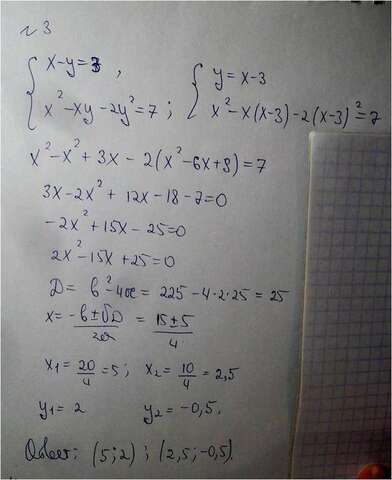 №3
{ x-y=3, { y=x-3
x²-xy-2y²=7; x²-x(x-3)-2(x-3)²=7
x²-x²+3x-2(x²-6x+9)=7
3x-2x²+12x-18-7=0
-2x²+15x-25=0
2x²-15x+25=0
D=b²-4ac=225-4·2·25=25
x=(-b±√D)/2a=(15±5)/4
x₁=20/4=5; x₂=10/4=2,5
y₁=2 y₂=-0,5.
Ответ: (5;2); (2,5;-0,5).